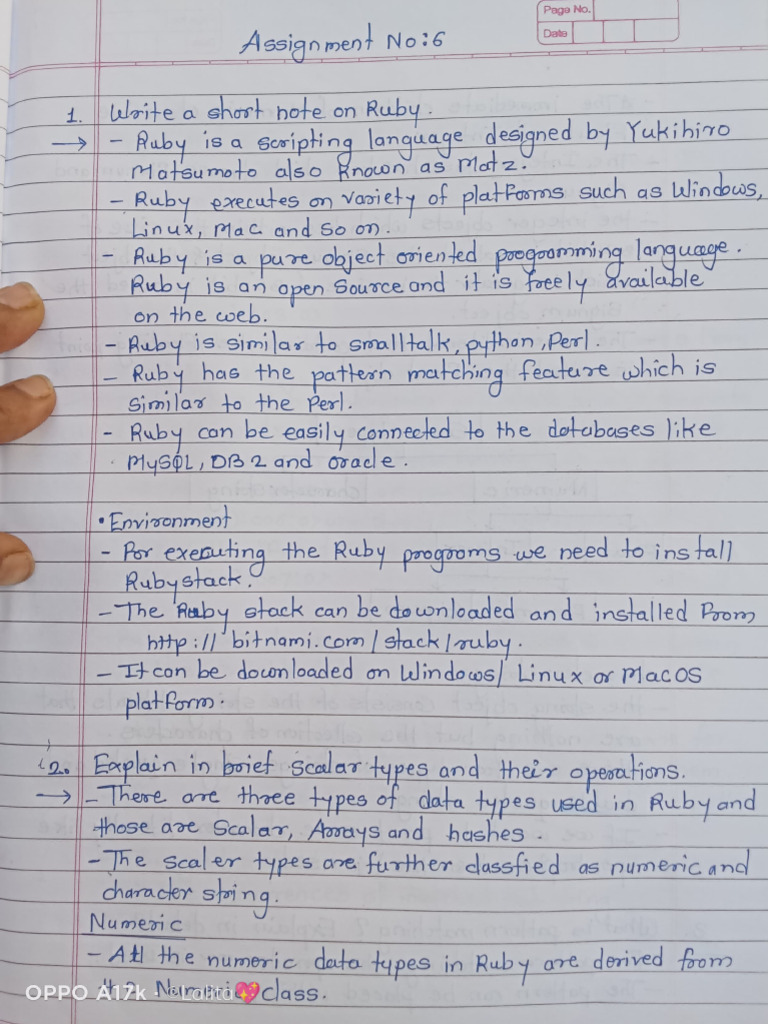 Page No.
Date
Assignment No:6
1. Write a short note on Ruby.
→ - Ruby is a scripting language designed by Yukihiro
Matsumoto also known as Matz.
- Ruby executes on variety of platforms such as Windows,
Linux, Mac and so on.
- Ruby is a pure object oriented programming language.
Ruby is an open source and it is freely available
on the web.
- Ruby is similar to smalltalk, python, Perl.
- Ruby has the pattern matching feature which is
similar to the Perl.
- Ruby can be easily connected to the databases like
MySQL, DB2 and oracle.
• Environment
- For executing the Ruby programs we need to install
Rubystack.
- The Ruby stack can be downloaded and installed From
http://bitnami.com/stack/ruby.
- It can be downloaded on Windows/ Linux or MacOS
platform.
2. Explain in brief scalar types and their operations.
→ - There are three types of data types used in Ruby and
those are Scalar, Arrays and hashes.
- The scaler types are further classfied as numeric and
character string.
Numeric
- All the numeric data types in Ruby are derived from
the Numeric class.
OPPO A17k